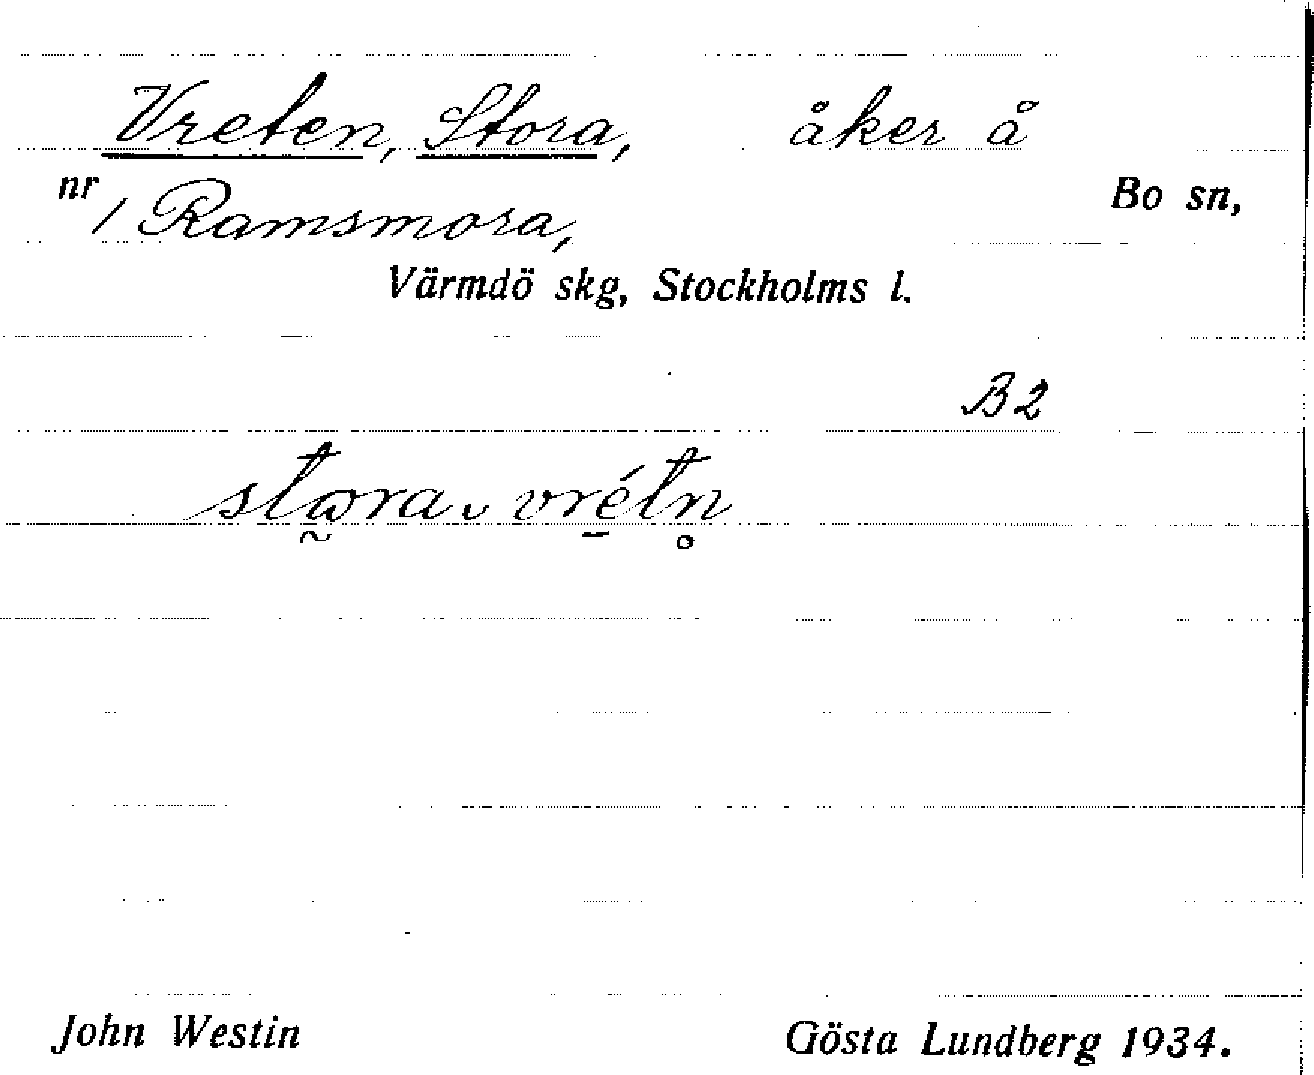 Vreten, Stora, åker å
nr 1 Ramsmora, Bo sn,
Värmdö skg, Stockholms l.
B2
stɷ̰ra ᴗ vré̠tn̥
John Westin Gösta Lundberg 1934.